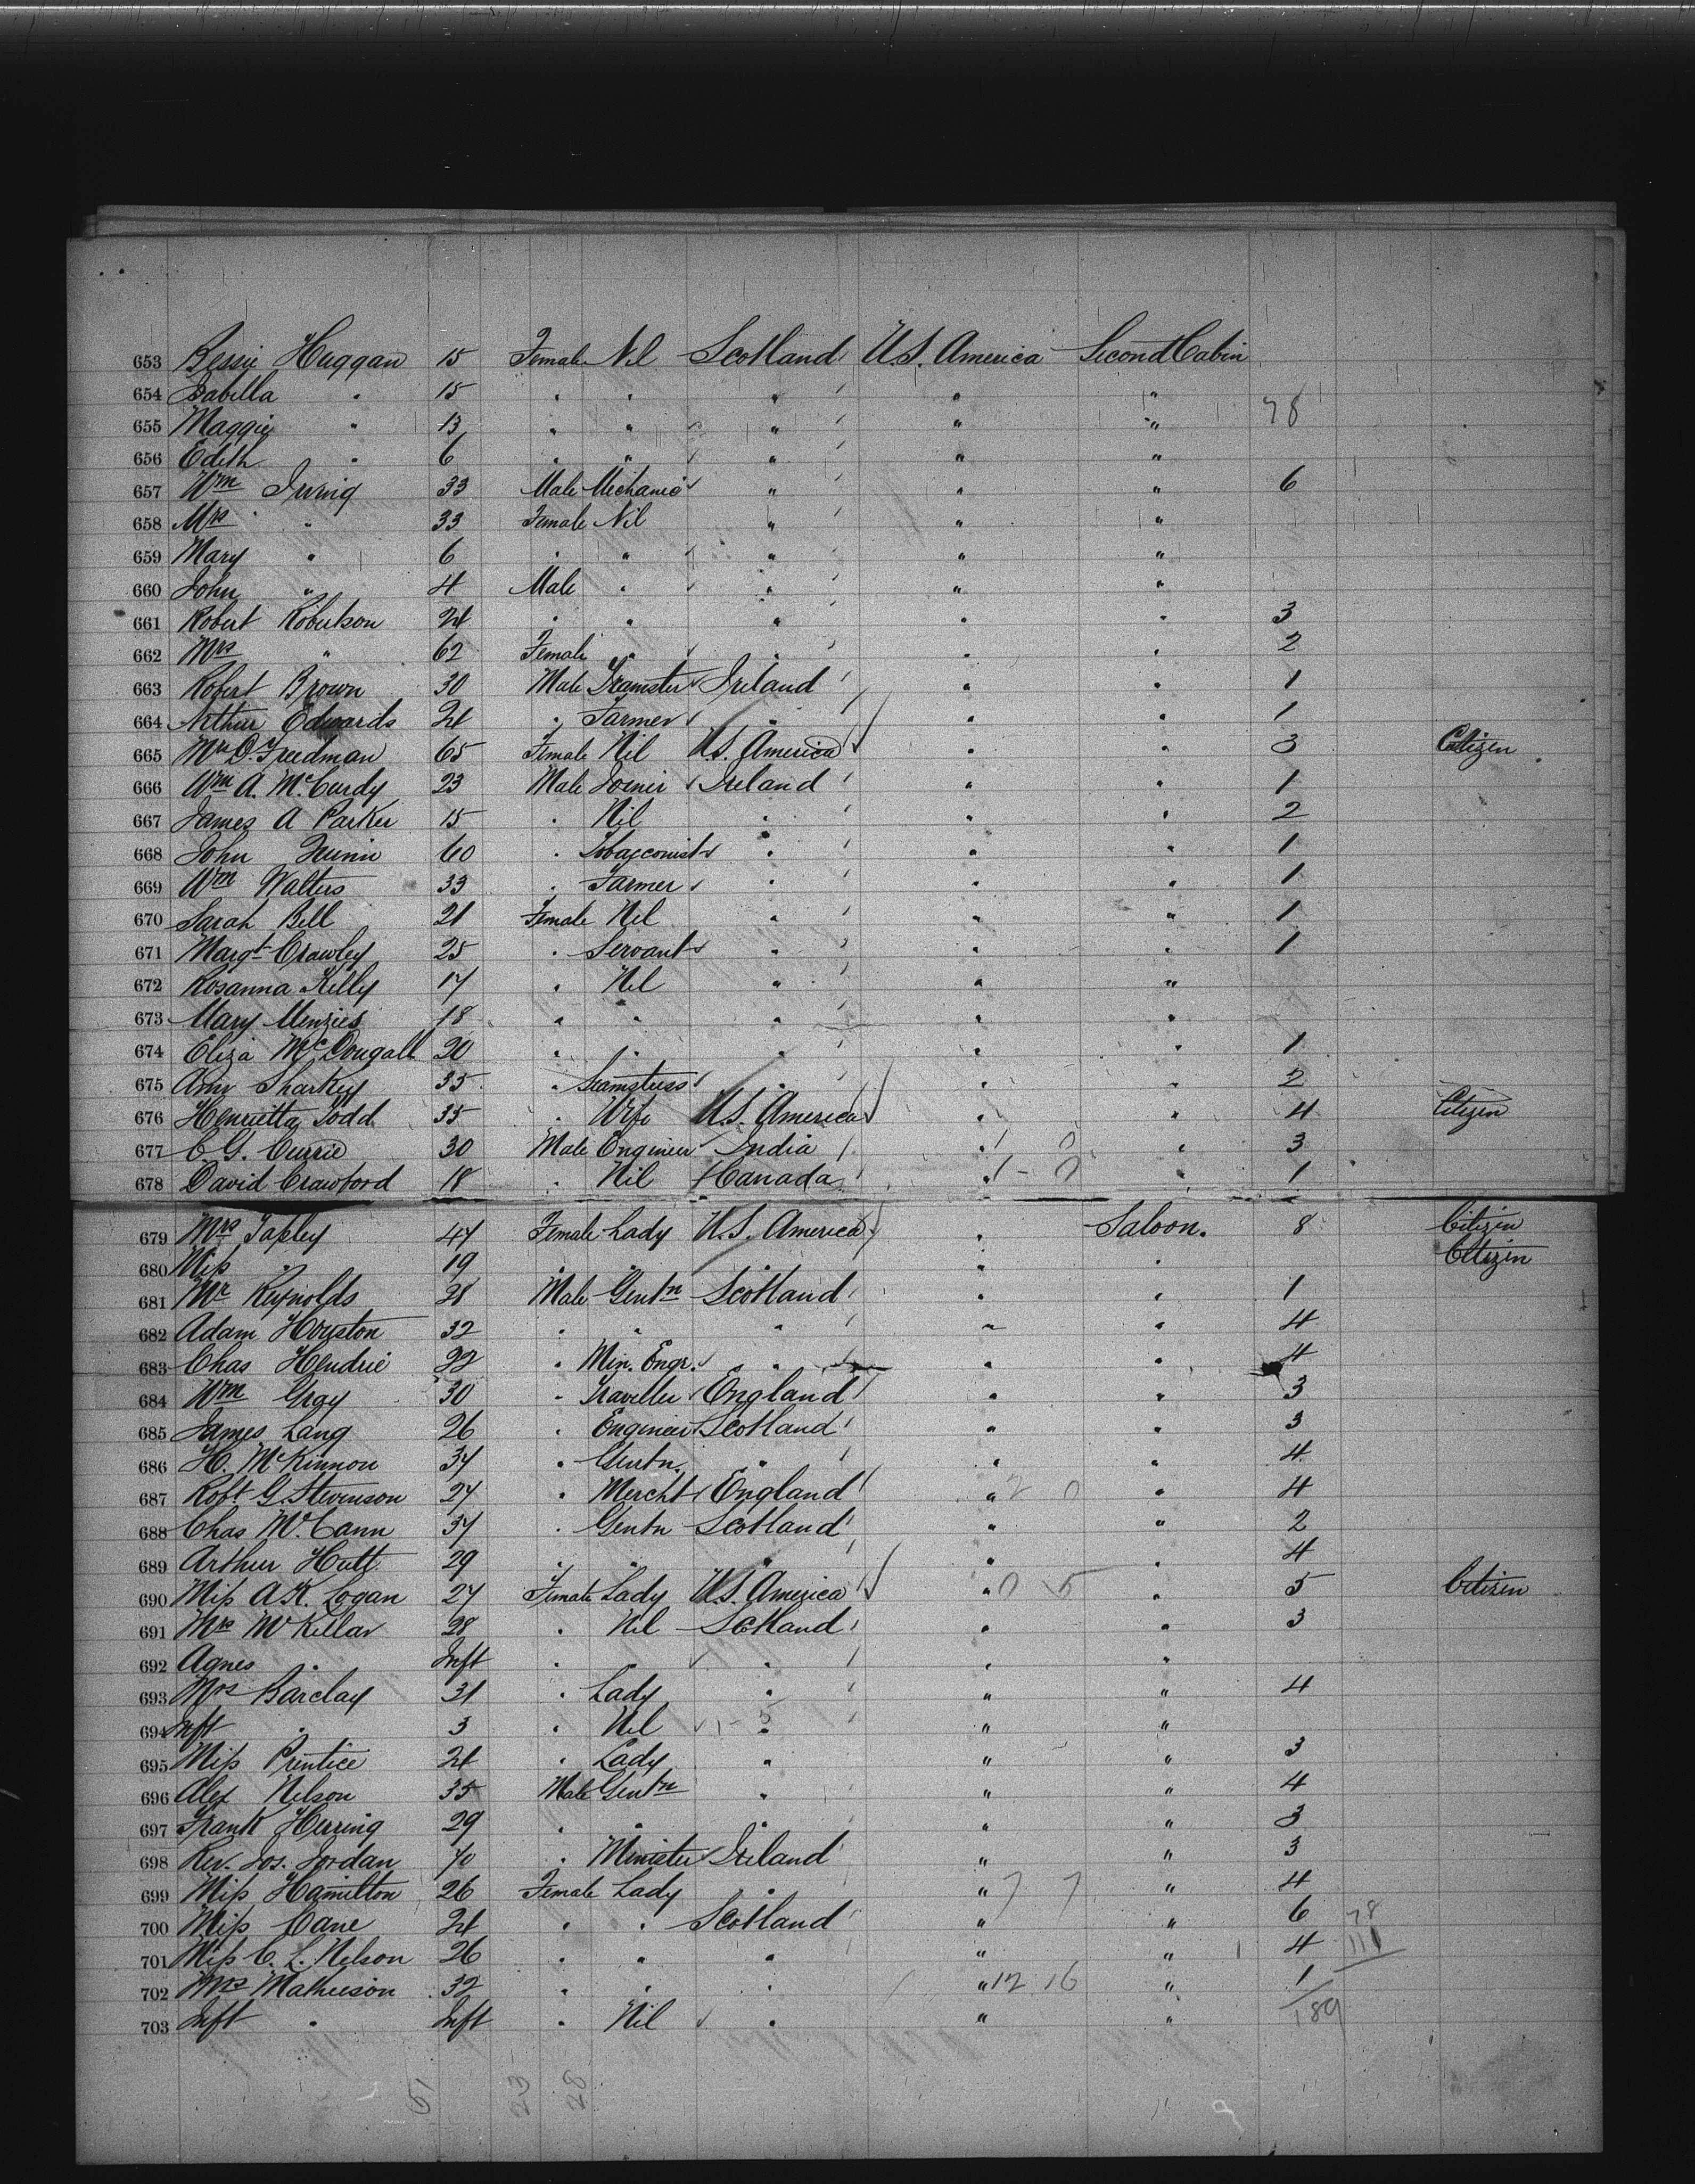 653 Bessie Huggan 15 Female Nil Scotland U.S. America Second Cabin
654 Isabella " 15 " " " " "
78
655 Maggie " 13 " " " " "
656 Edith " 6 " " " " "
657 Wm Irving 33 Male Mechanic " " " 6
658 Mrs " 33 Female Nil " " "
659 Mary " 6 " " " " "
660 John " 4 Male " " " "
661 Robert Robertson 24 " " " " " 3
662 Mrs " 62 Female " " " " 2
663 Robert Brown 30 Male Teamster Ireland " " 1
664 Arthur Edwards 24 " Farmer " " " 1
665 Freedman 65 Female Nil U.S. America " " 3 Citizen
666 Wm A. McCurdy 23 Male Joiner Ireland " " 1
667 James A Parker 15 " Nil " " " 2
668 John 60 " Tobacconist " " " 1
669 Wm Walters 33 " Farmer " " " 1
670 Sarah Bell 21 Female Nil " " " 1
671 Margt Crawley 25 " Servant " " " 1
672 Rosanna Kelly 17 " Nil " " "
673 Mary Menzies 18 " " " " "
674 Eliza McDougall 20 " " " " " 1
675 Ann Sharkey 35 " Seamstress " " " 2
676 Henrietta Todd 35 " Wife U.S. America " " 4 Citizen
677 C. G. Currie 30 Male Engineer India " 1 0 " 3
678 David Crawford 18 " Nil Canada " 1 - 0 " 1
679 Mrs Tapley 47 Female Lady U.S. America " Saloon. 8 Citizen
680 Miss " 19 " " " " " Citizen
681 Mr Reynolds 28 Male Gentn Scotland " " 1
682 Adam Houston 32 " " " " " 4
683 Chas Hendrie 22 " Min. Engr. " " " 4
684 Wm Gray 30 " Traveller England " " 3
685 James Lang 26 " Engineer Scotland " " 3
686 H. McKinnon 34 " Gentn. " " " 4
687 Robt G. Stevenson 27 " Mercht England " 2 0 " 4
688 Chas McCann 34 " Gentn Scotland " " 2
689 Arthur Hutt 29 " " " " " 4
690 Miss A. K. Logan 27 Female Lady U.S. America " 0 5 " 5 Citizen
691 Mrs McKellar 28 " Nil Scotland " " 3
692 Agnes " Inft " " " " "
693 Mrs Barclay 31 " Lady " " " 4
694 Inft " 3 " Nil " " "
695 Miss Prentice 24 " Lady " " " 3
696 Alex Nelson 35 Male Gentn " " " 4
697 Frank Herring 29 " " " " " 3
698 Rev. Jos. Jordan 40 " Minister Ireland " " 3
699 Miss Hamilton 26 Female Lady " " 7 7 " 4
700 Miss Cane 24 " " Scotland " " 6 78
701 Miss C. L. Nelson 26 " " " " " 4 111
702 Mrs Mathieson 32 " " " " 12 16 " 1
703 Inft " Inft " Nil " " " 189
51 23 28